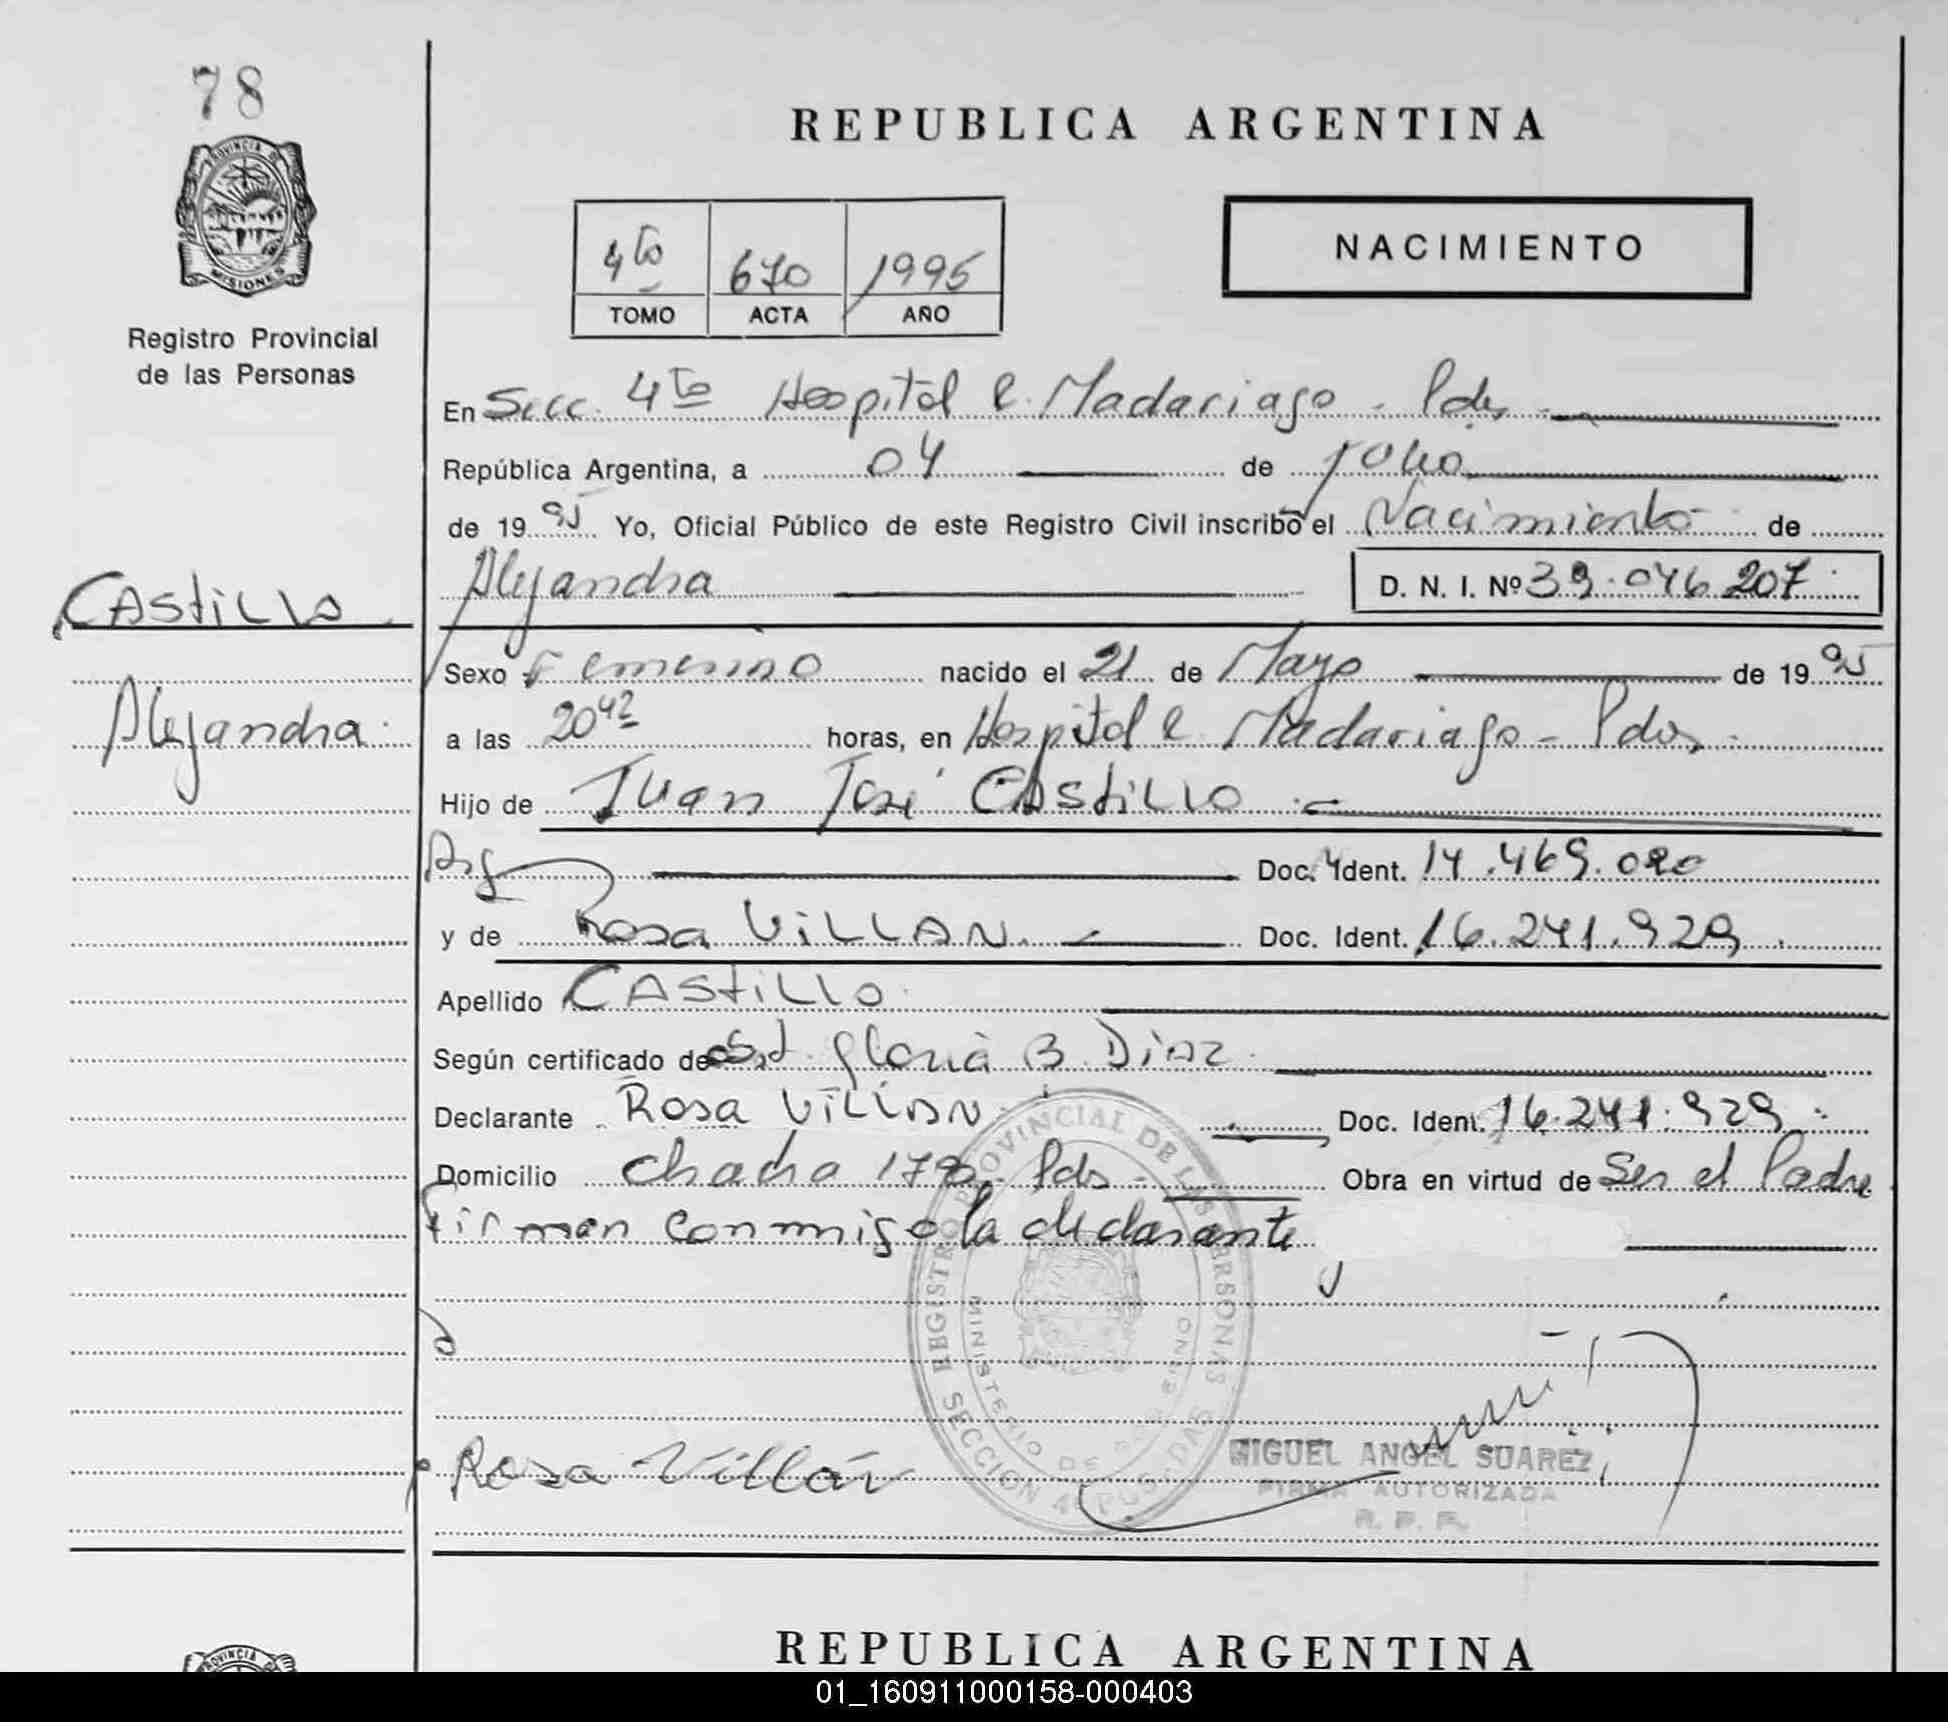 78
PROVINCIA DE
MISIONES
Registro Provincial
de las Personas
REPUBLICA ARGENTINA
4to 670 1995
TOMO ACTA AÑO
NACIMIENTO
En Secc. 4to Hospital R. Madariaga - Pdas
República Argentina, a 04 de Julio
de 19 95 Yo, Oficial Público de este Registro Civil inscribo el Nacimiento de
Alejandra D. N. I. Nº 39.046.207
CASTiLLO
Alejandra
Sexo Femenino nacido el 21 de Mayo de 19 95
a las 20 42 horas, en Hospital R. Madariaga - Pdas
Hijo de Juan José CAStiLLO
Arg Doc. Ident. 14.469.020
y de Rosa ViLLAN Doc. Ident. 16.241.929
Apellido CAStiLLO
Según certificado de Obst. Gloria B. Diaz
Declarante Rosa ViLLAN Doc. Ident. 16.241.929
Domicilio Chacra 178 Pdas Obra en virtud de Ser el Padre
Firman conmigo la declarante
REGISTRO PROVINCIAL DE LAS PERSONAS
MINISTERIO DE GOBIERNO
SECCION 4a POSADAS
Rosa Villán
MIGUEL ANGEL SUAREZ
FIRMA AUTORIZADA
R. P. P.
REPUBLICA ARGENTINA
PROVINCIA DE
01_160911000158-000403